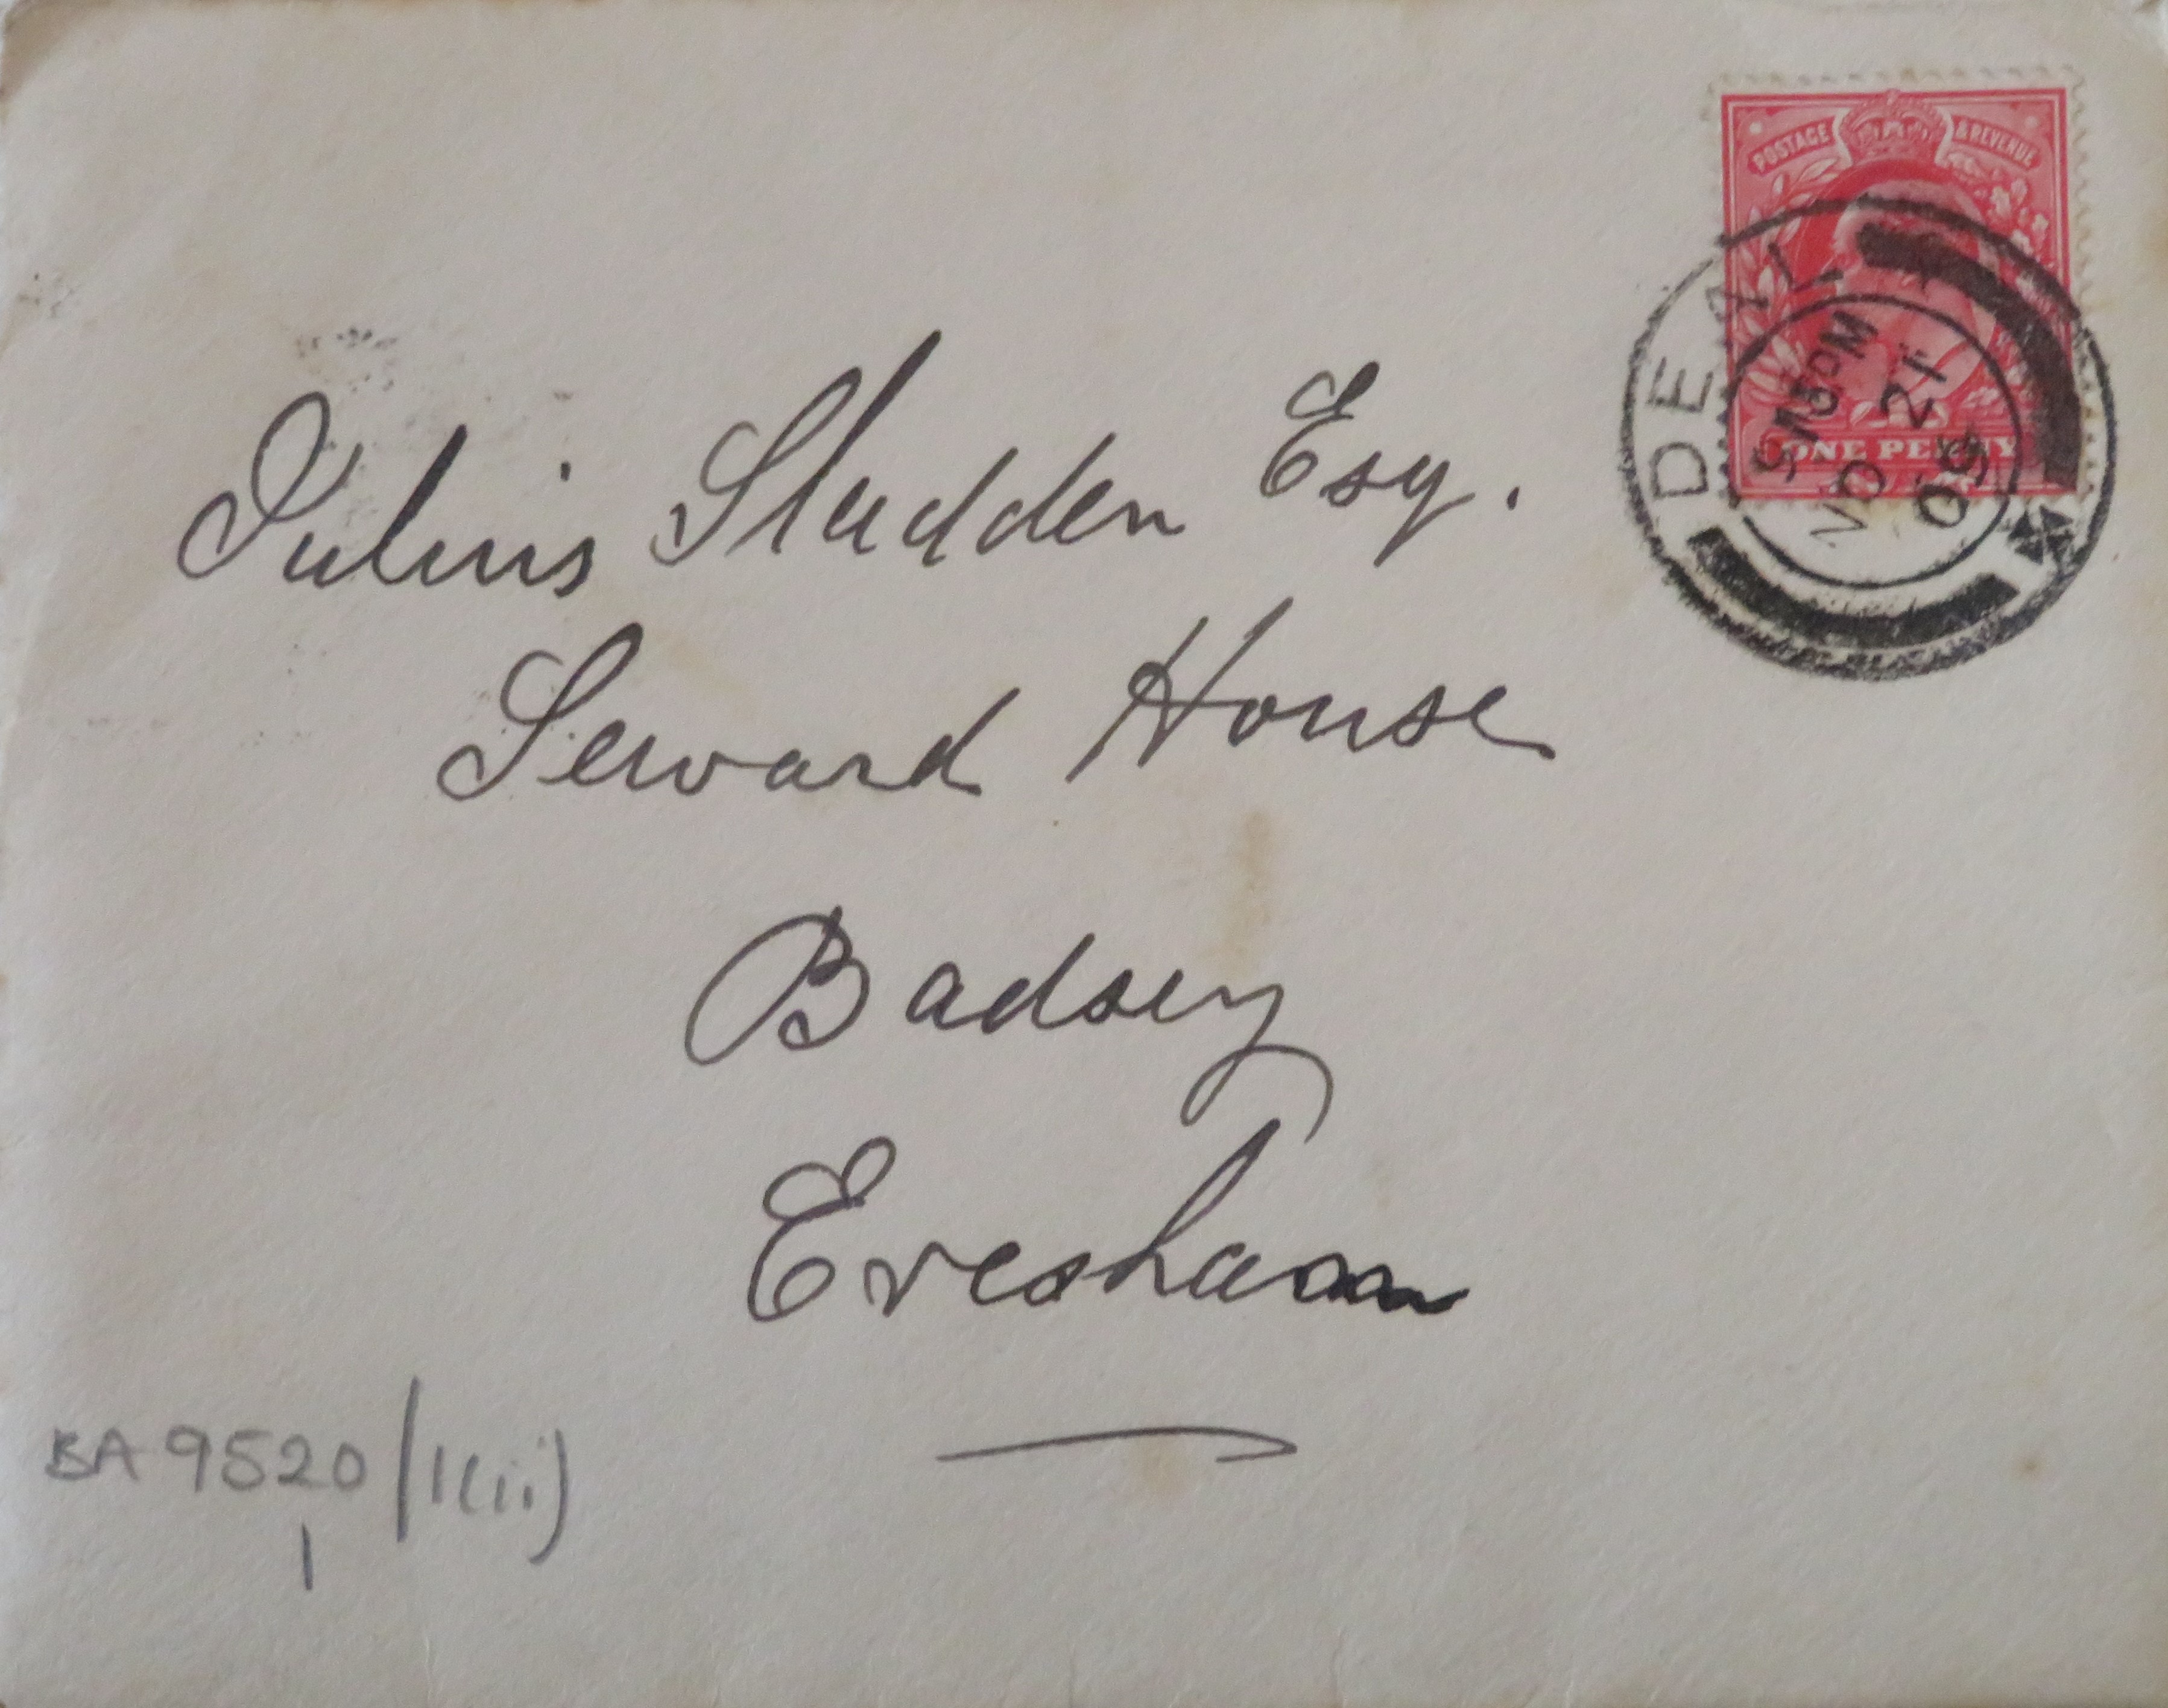 POSTAGE & REVENUE
ONE PENNY
DEAL
NO 21
09
Julius Sladden Esq.
Seward House
Badsey
Evesham
BA 9520/1(ii)
1